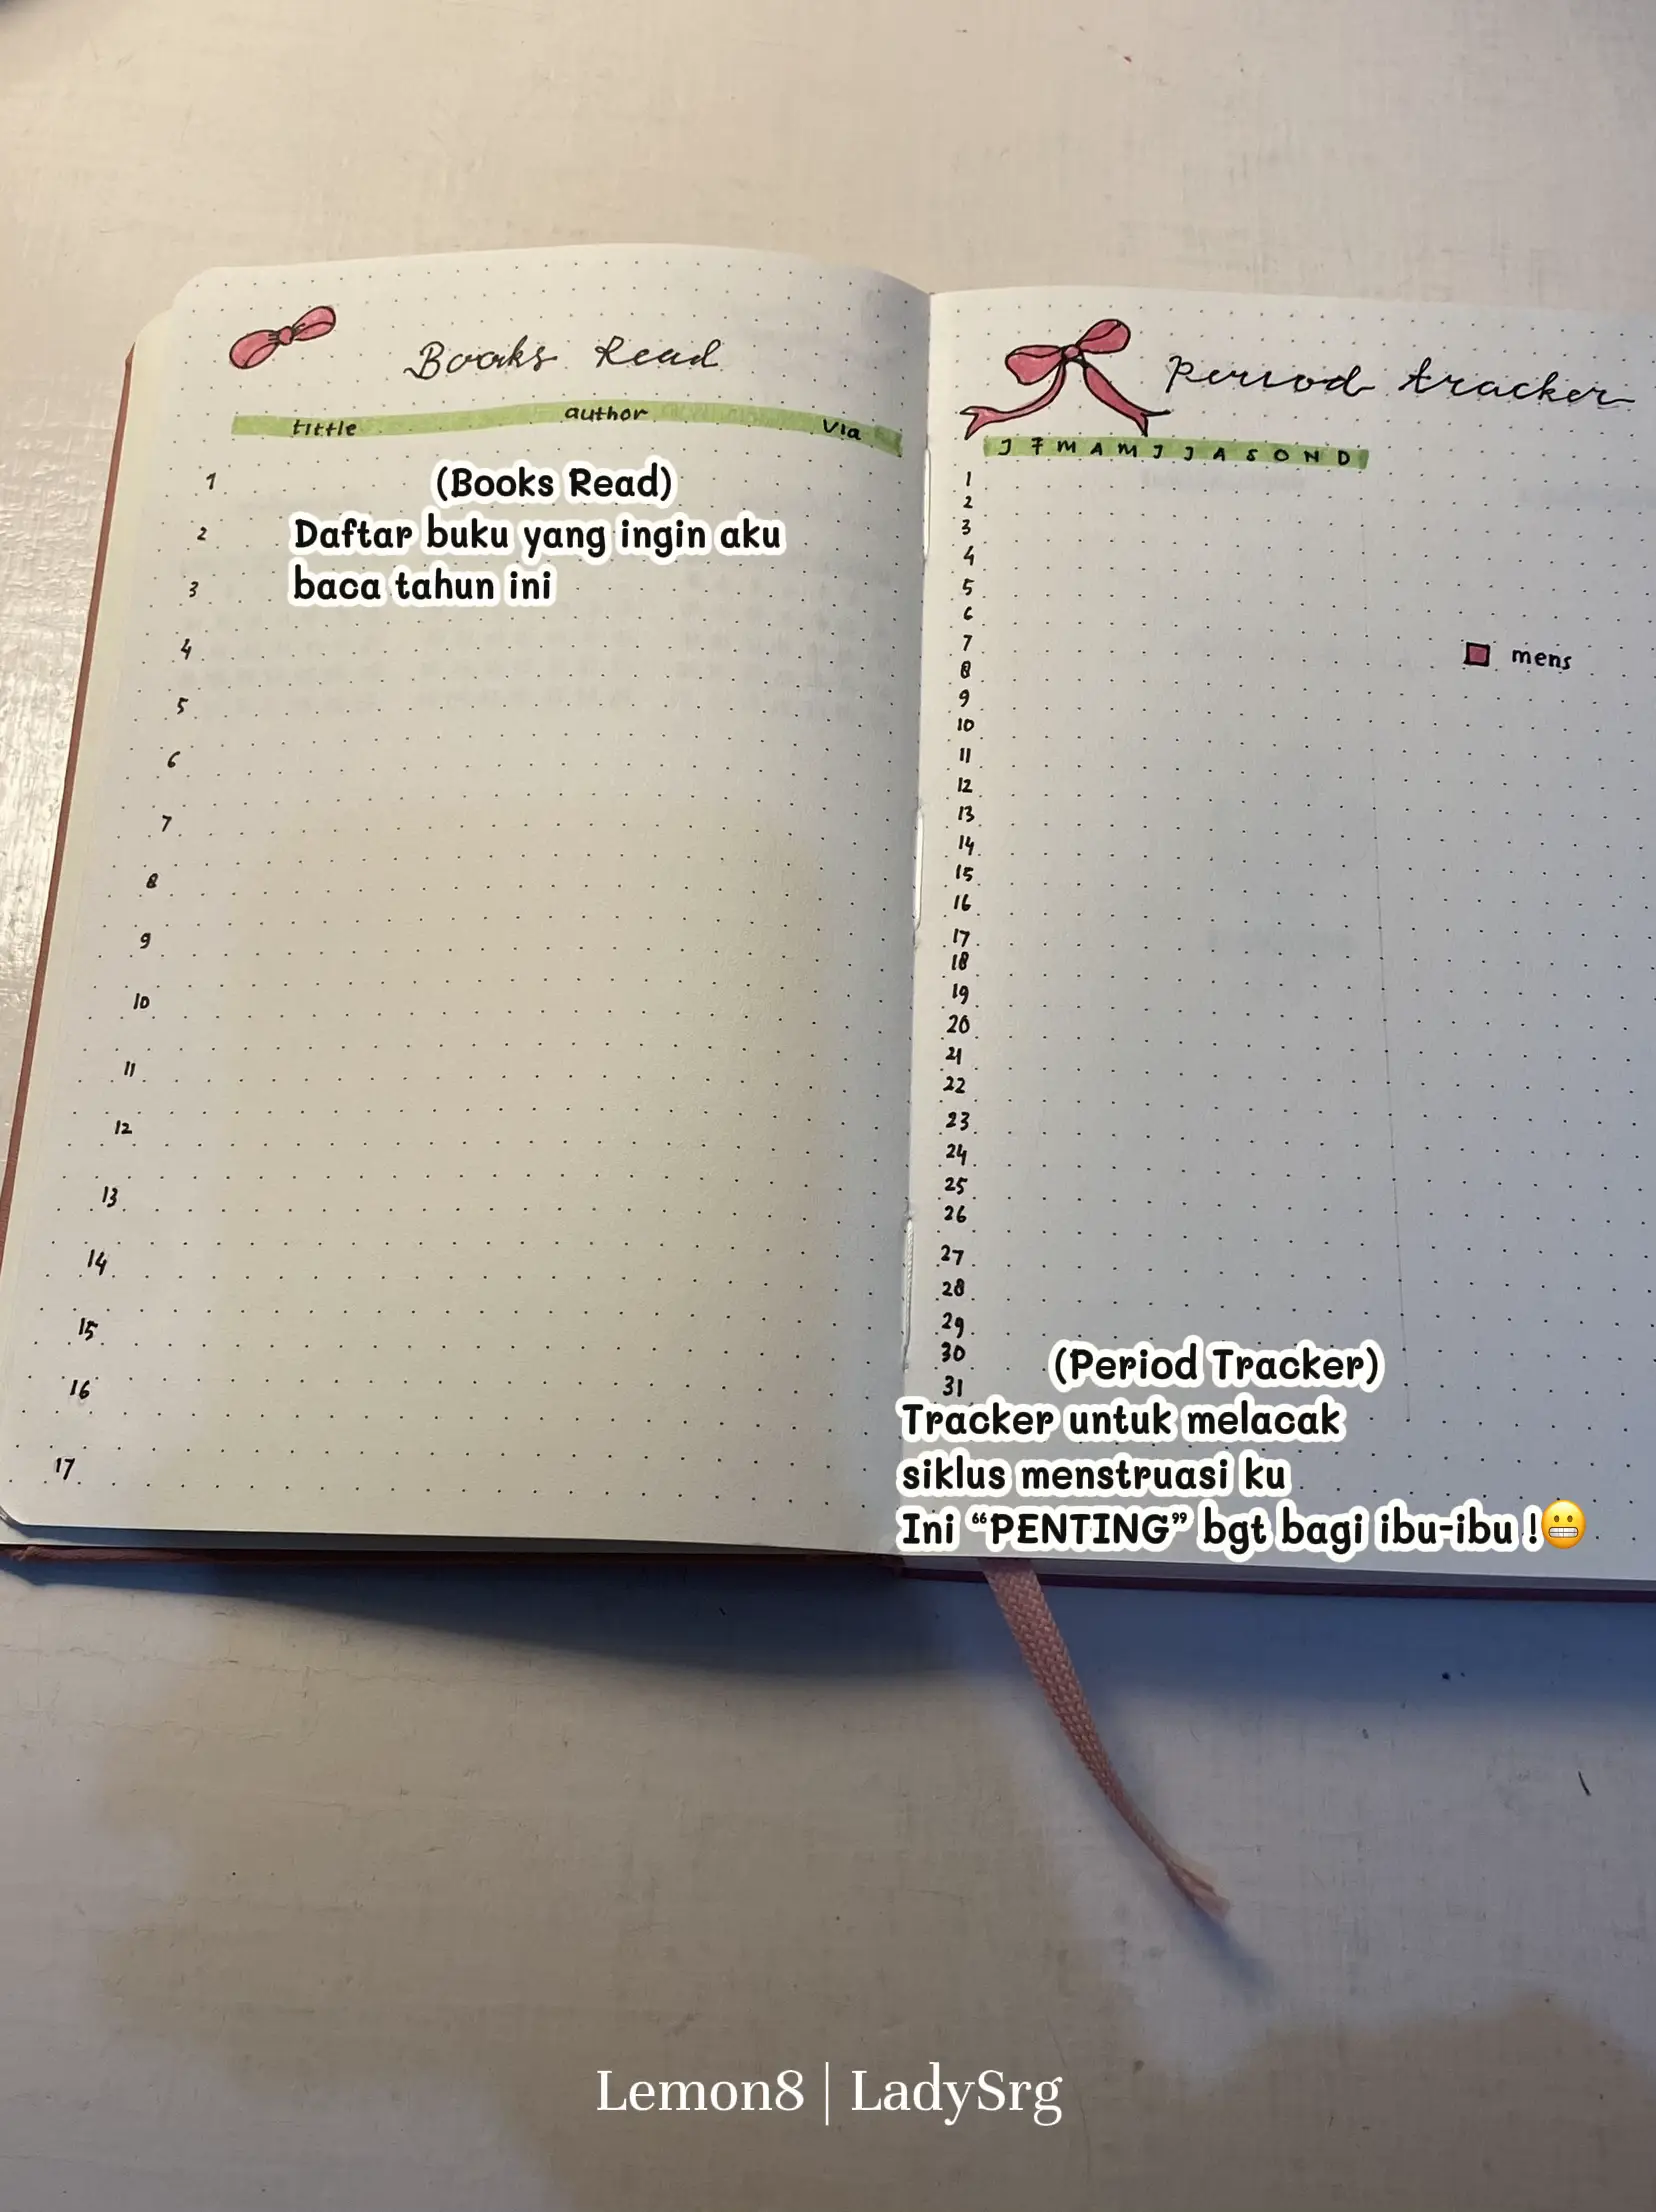 Books Read
tittle author Via
(Books Read)
Daftar buku yang ingin aku
baca tahun ini
1
2
3
4
5
6
7
8
9
10
11
12
13
14
15
16
17
Period tracker
J F M A M J J A S O N D
1
2
3
4
5
6
7
8
9
10
11
12
13
14
15
16
17
18
19
20
21
22
23
24
25
26
27
28
29
30
31
mens
(Period Tracker)
Tracker untuk melacak
siklus menstruasi ku
Ini “PENTING” bgt bagi ibu-ibu !😬
Lemon8 | LadySrg